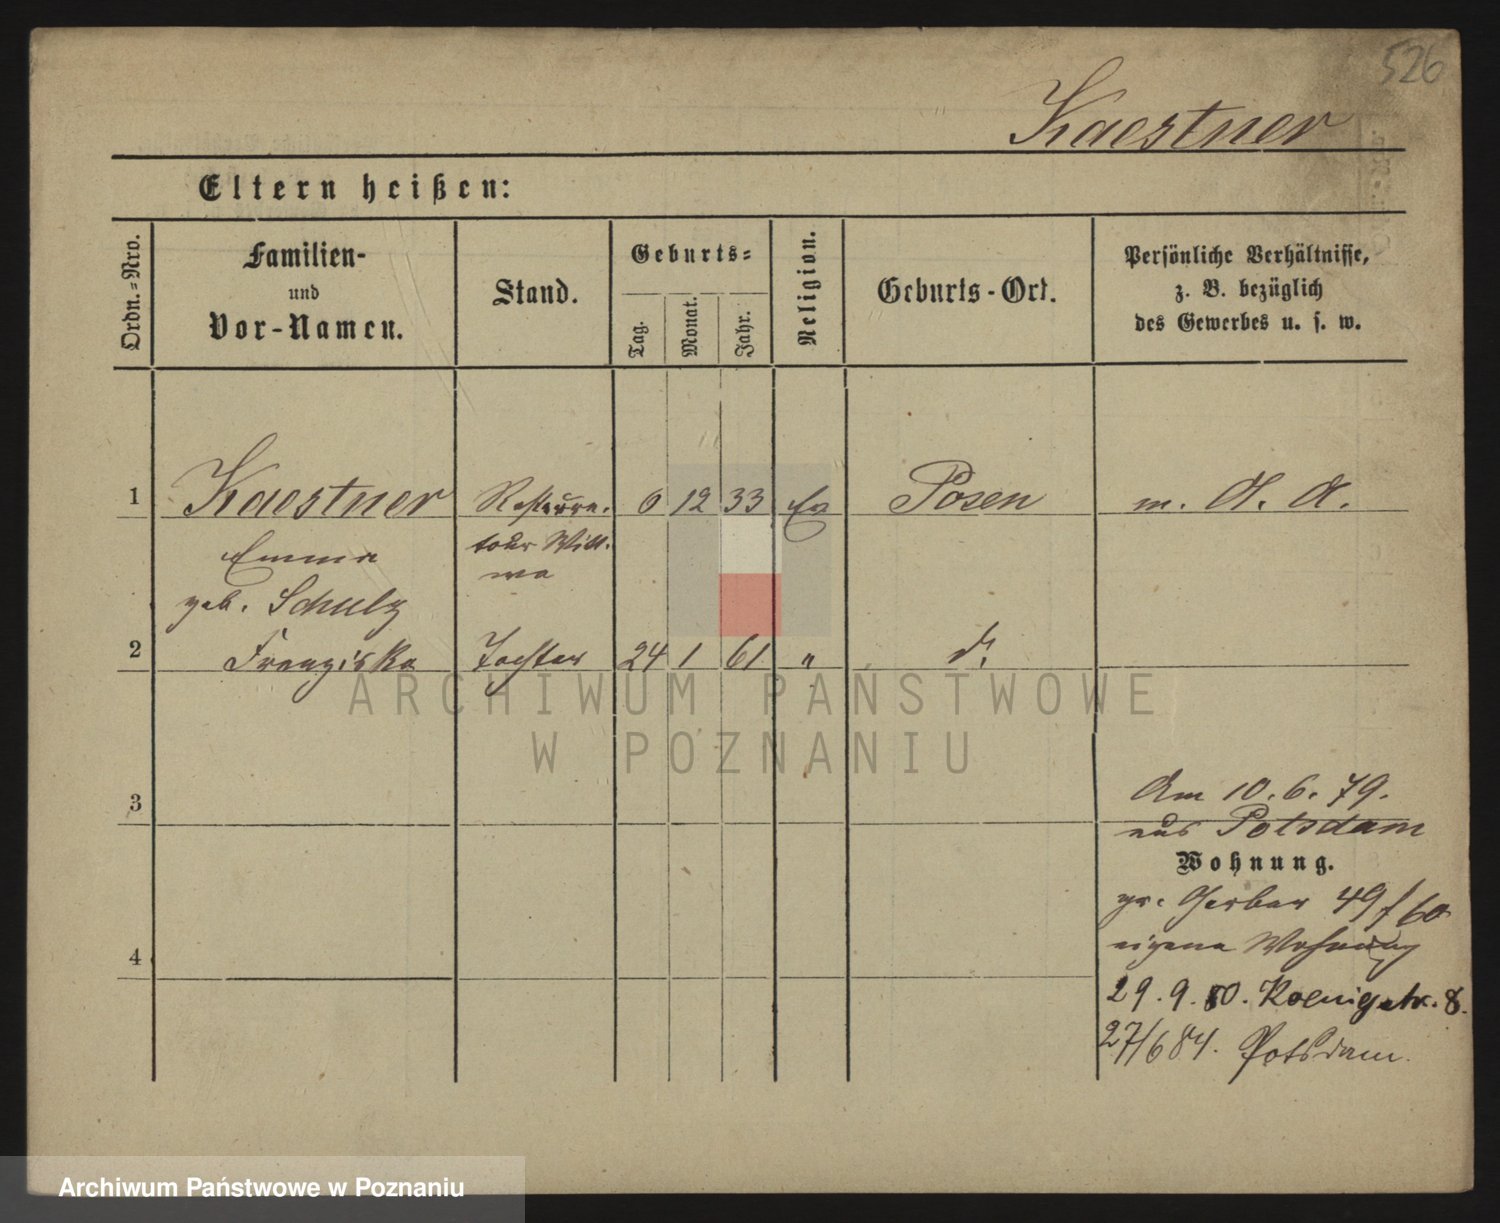 526
Kaestner
Eltern heißen:
Ordn.-Nro.
Familien-
und
Vor-Namen.
Stand.
Geburts-
Tag.
Monat.
Jahr.
Religion.
Geburts-Ort.
Persönliche Verhältnisse,
z. B. bezüglich
des Gewerbes u. s. w.
1 Kaestner Restaura. 6 12 33 Ev Posen m. A. A.
Emma teur Witt.
geb. Schulz we
2 Franziska Tochter 24 1 61 " d.
ARCHIWUM PAŃSTWOWE
W POZNANIU
3
Am 10. 6. 79.
aus Potsdam
Wohnung.
gr. Gerber 49/60
eigene Wohnung
4
29. 9. 80. Koenigstr. 8.
27/6 84. Potsdam.
Archiwum Państwowe w Poznaniu